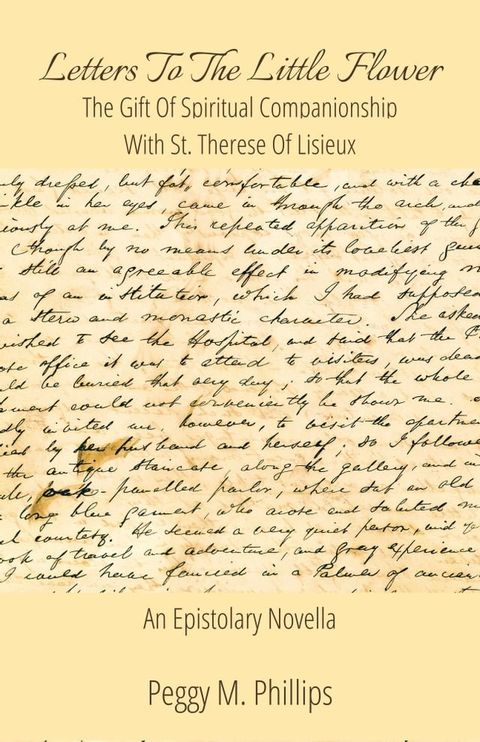 Letters To The Little Flower
The Gift Of Spiritual Companionship
With St. Therese Of Lisieux
dressed, but fat, comfortable, and with a
in her eyes, came in through the arch, and
at me. This repeated apparition of the
though by no means under its loveliest
still an agreeable effect in modifying
of an institution, which I had supposed
a stern and monastic character. She asked
wished to see the Hospital, and said that the
office it was to attend to visitors, was dead
be buried that very day; so that the whole
would not conveniently be shown me.
invited me, however, to visit the apartment
by her husband and herself; so I followed
the antique staircase, along the gallery, and
oak-panelled parlor, where sat an old
long blue garment, who arose and saluted me
courtesy. He seemed a very quiet person, and
look of travel and adventure, and gray experience
I could have fancied in a Palmer of ancient
An Epistolary Novella
Peggy M. Phillips